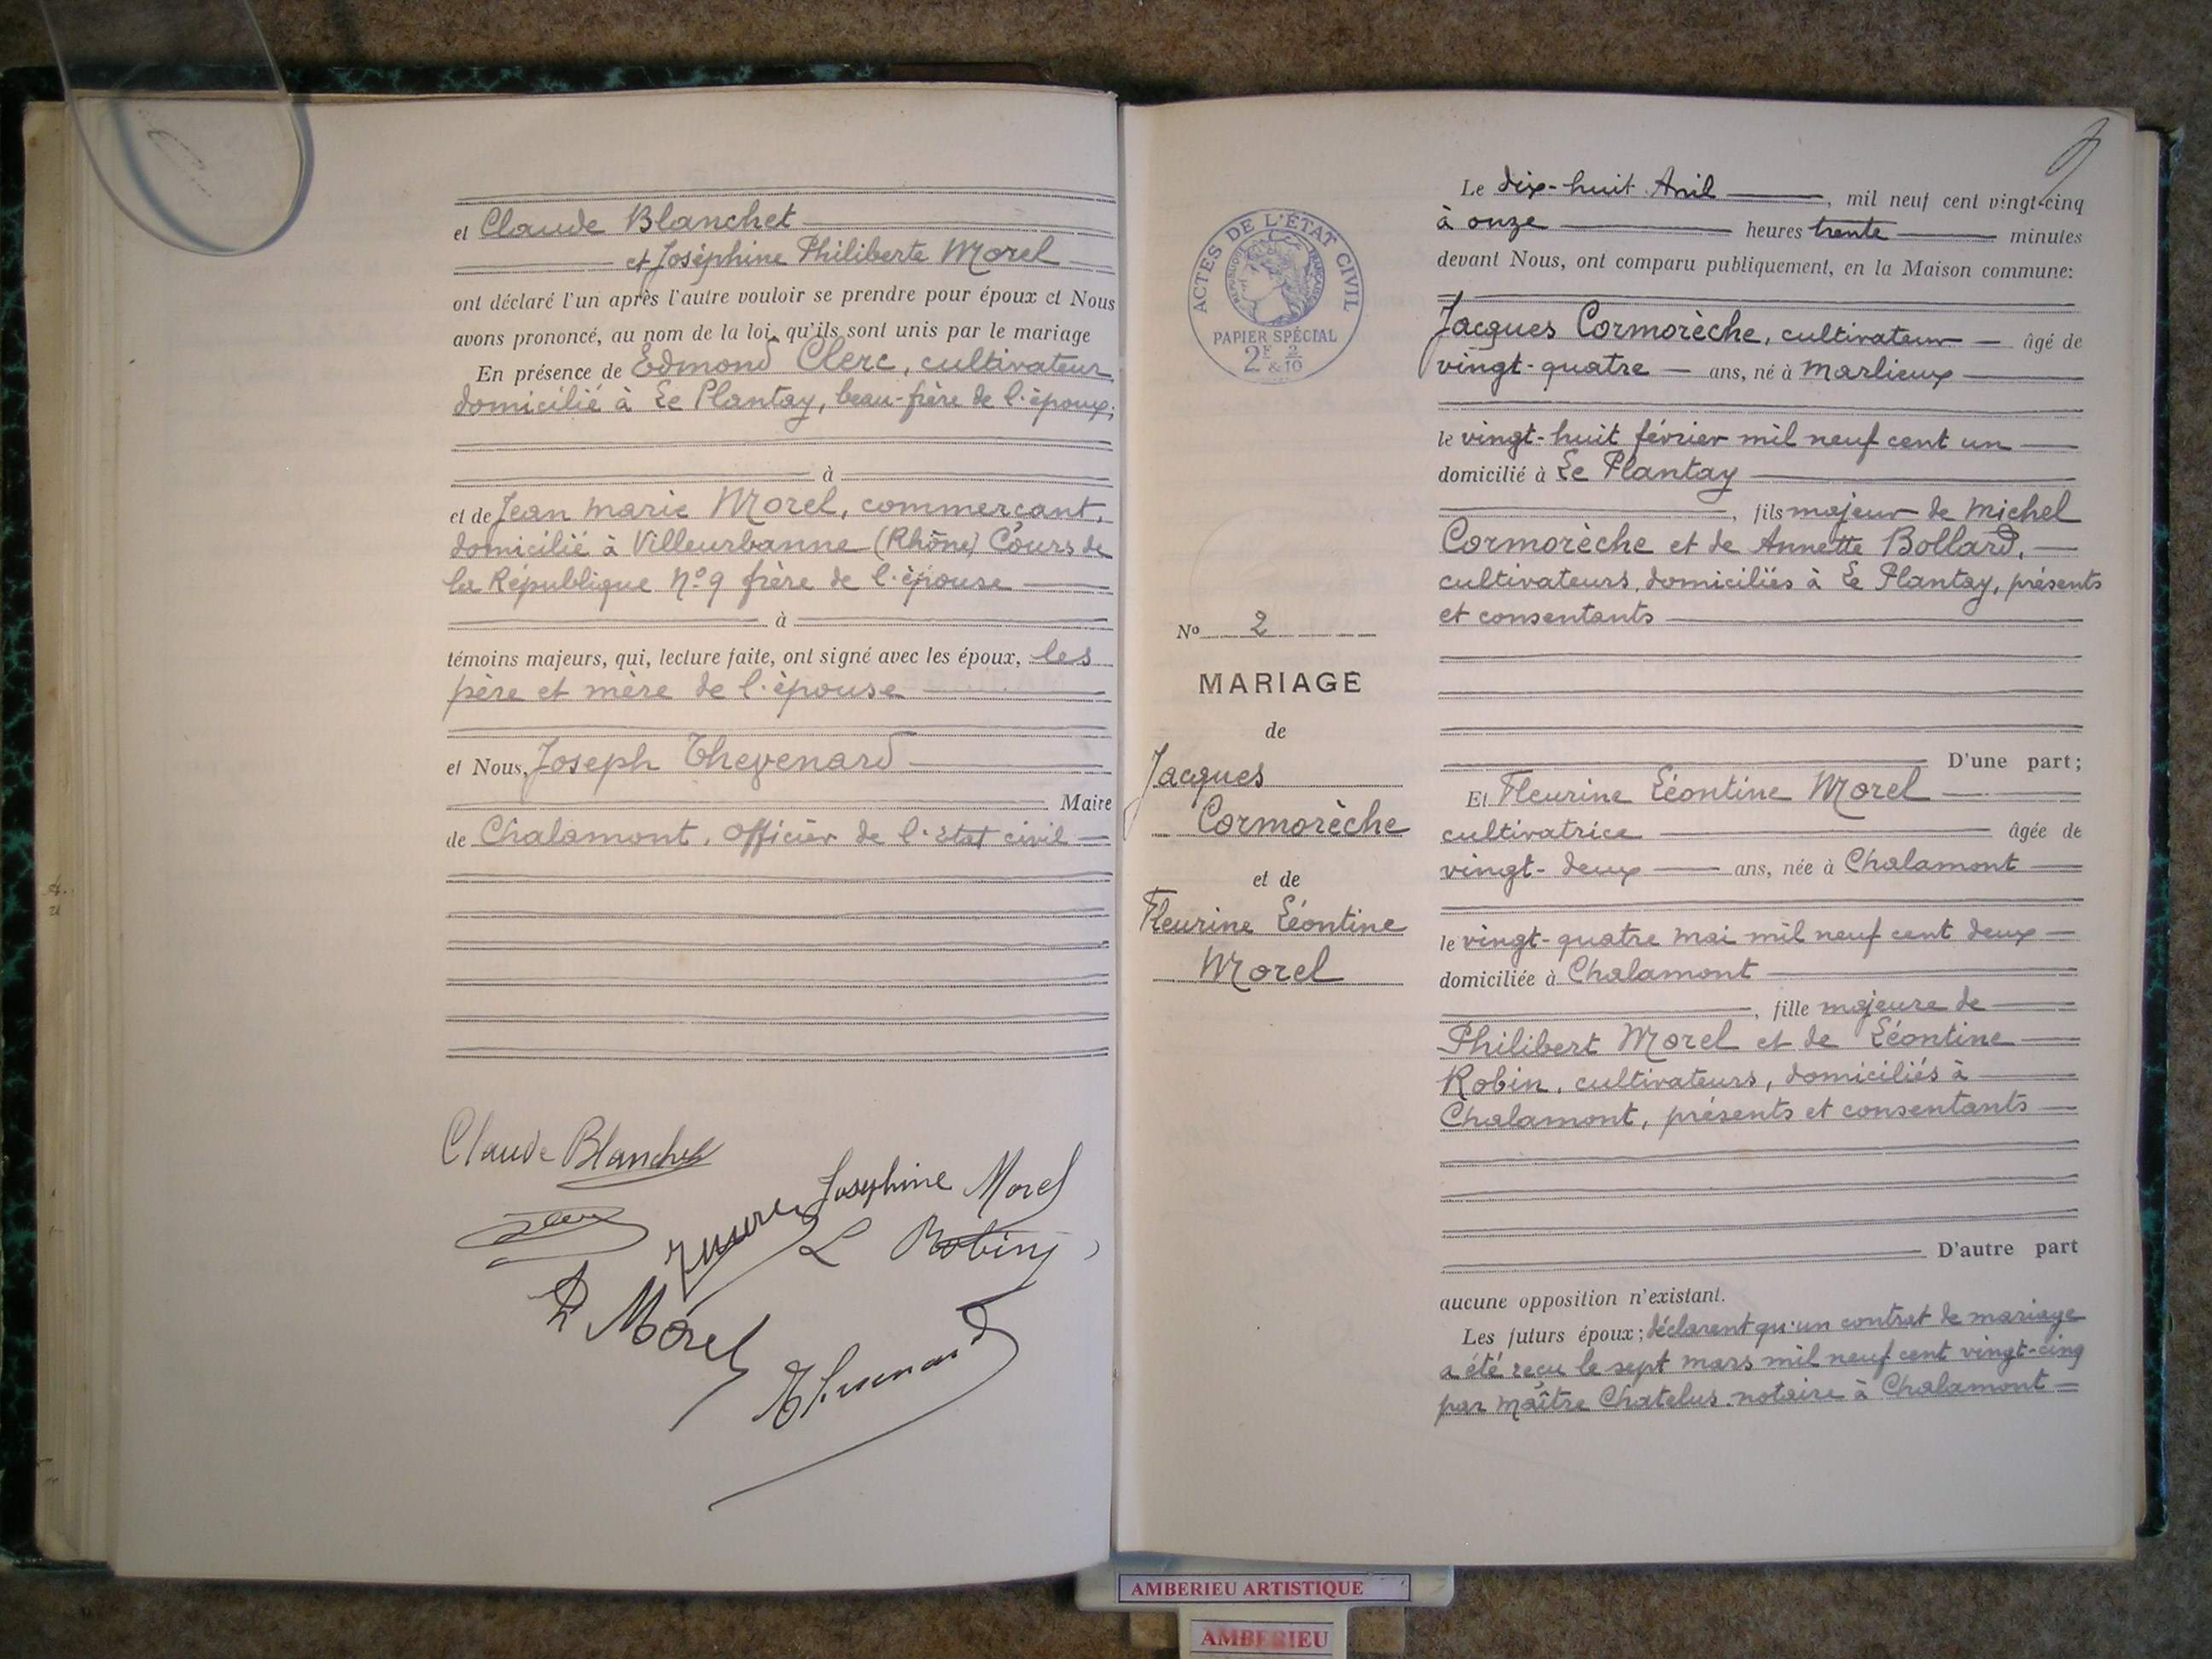 et Claude Blanchet
et Joséphine Philiberte Morel
ont déclaré l'un après l'autre vouloir se prendre pour époux et Nous
avons prononcé, au nom de la loi, qu'ils sont unis par le mariage
En présence de Edmond Clerc, cultivateur,
domicilié à Le Plantay, beau-frère de l'époux;
à
et de Jean marie Morel, commerçant,
domicilié à Villeurbanne (Rhône) Cours de
la République No 9 frère de l'épouse
à
témoins majeurs, qui, lecture faite, ont signé avec les époux, les
père et mère de l'épouse
et Nous, Joseph Thevenard
Maire
de Chalamont, Officier de l'état civil
Claude Blanchet
Joséphine Morel
L Robin
P Morel
Thevenard
ACTES DE L'ÉTAT CIVIL
RÉPUBLIQUE FRANÇAISE
PAPIER SPÉCIAL
2F & 2/10
No 2
MARIAGE
de
Jacques
Cormorèche
et de
Fleurine Léontine
Morel
Le dix-huit Avril, mil neuf cent vingt-cinq
à onze heures trente minutes
devant Nous, ont comparu publiquement, en la Maison commune:
Jacques Cormorèche, cultivateur âgé de
vingt-quatre ans, né à Marlieux
le vingt-huit février mil neuf cent un
domicilié à Le Plantay
, fils majeur de Michel
Cormorèche et de Annette Bollard,
cultivateurs, domiciliés à Le Plantay, présents
et consentants
D'une part;
Et Fleurine Léontine Morel
cultivatrice âgée de
vingt-deux ans, née à Chalamont
le vingt-quatre mai mil neuf cent deux
domiciliée à Chalamont
, fille majeure de
Philibert Morel et de Léontine
Robin, cultivateurs, domiciliés à
Chalamont, présents et consentants
D'autre part
aucune opposition n'existant.
Les futurs époux; déclarent qu'un contrat de mariage
a été reçu le sept mars mil neuf cent vingt-cinq
par Maître Chatelus, notaire à Chalamont
AMBERIEU ARTISTIQUE
AMBERIEU